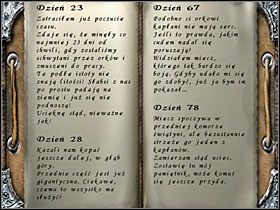 Dzień 23
Zatraciłem już poczucie
czasu.
Zdaje się, że minęły co
najmniej 23 dni od
chwili, gdy zostaliśmy
schwytani przez orków i
zmuszeni do pracy.
Te podłe istoty nie
znają litości! Słabsi z nas
po prostu padają na
ziemię i już się nie
podnoszą!
Ucieknę stąd, nieważne
jak!
Dzień 28
Kazali nam kopać
jeszcze dalej, w głąb
góry.
Przednia część jest już
gigantyczna. Ciekawe,
czemu to wszystko ma
służyć?
Dzień 67
Podobno ci orkowi
kapłani nie mają serc.
Jeśli to prawda, jakim
cudem nadal się
poruszają?
Widziałem miecz,
którego tak bardzo się
boją. Gdyby udało mi się
go zdobyć, już ja bym im
pokazał...
Dzień 78
Miecz spoczywa w
przedniej komorze
świątyni, ale bezustannie
strzeże go jeden z
kapłanów.
Zamierzam stąd uciec.
Zostawię tu mój
pamiętnik, może komuś
się jeszcze przyda.